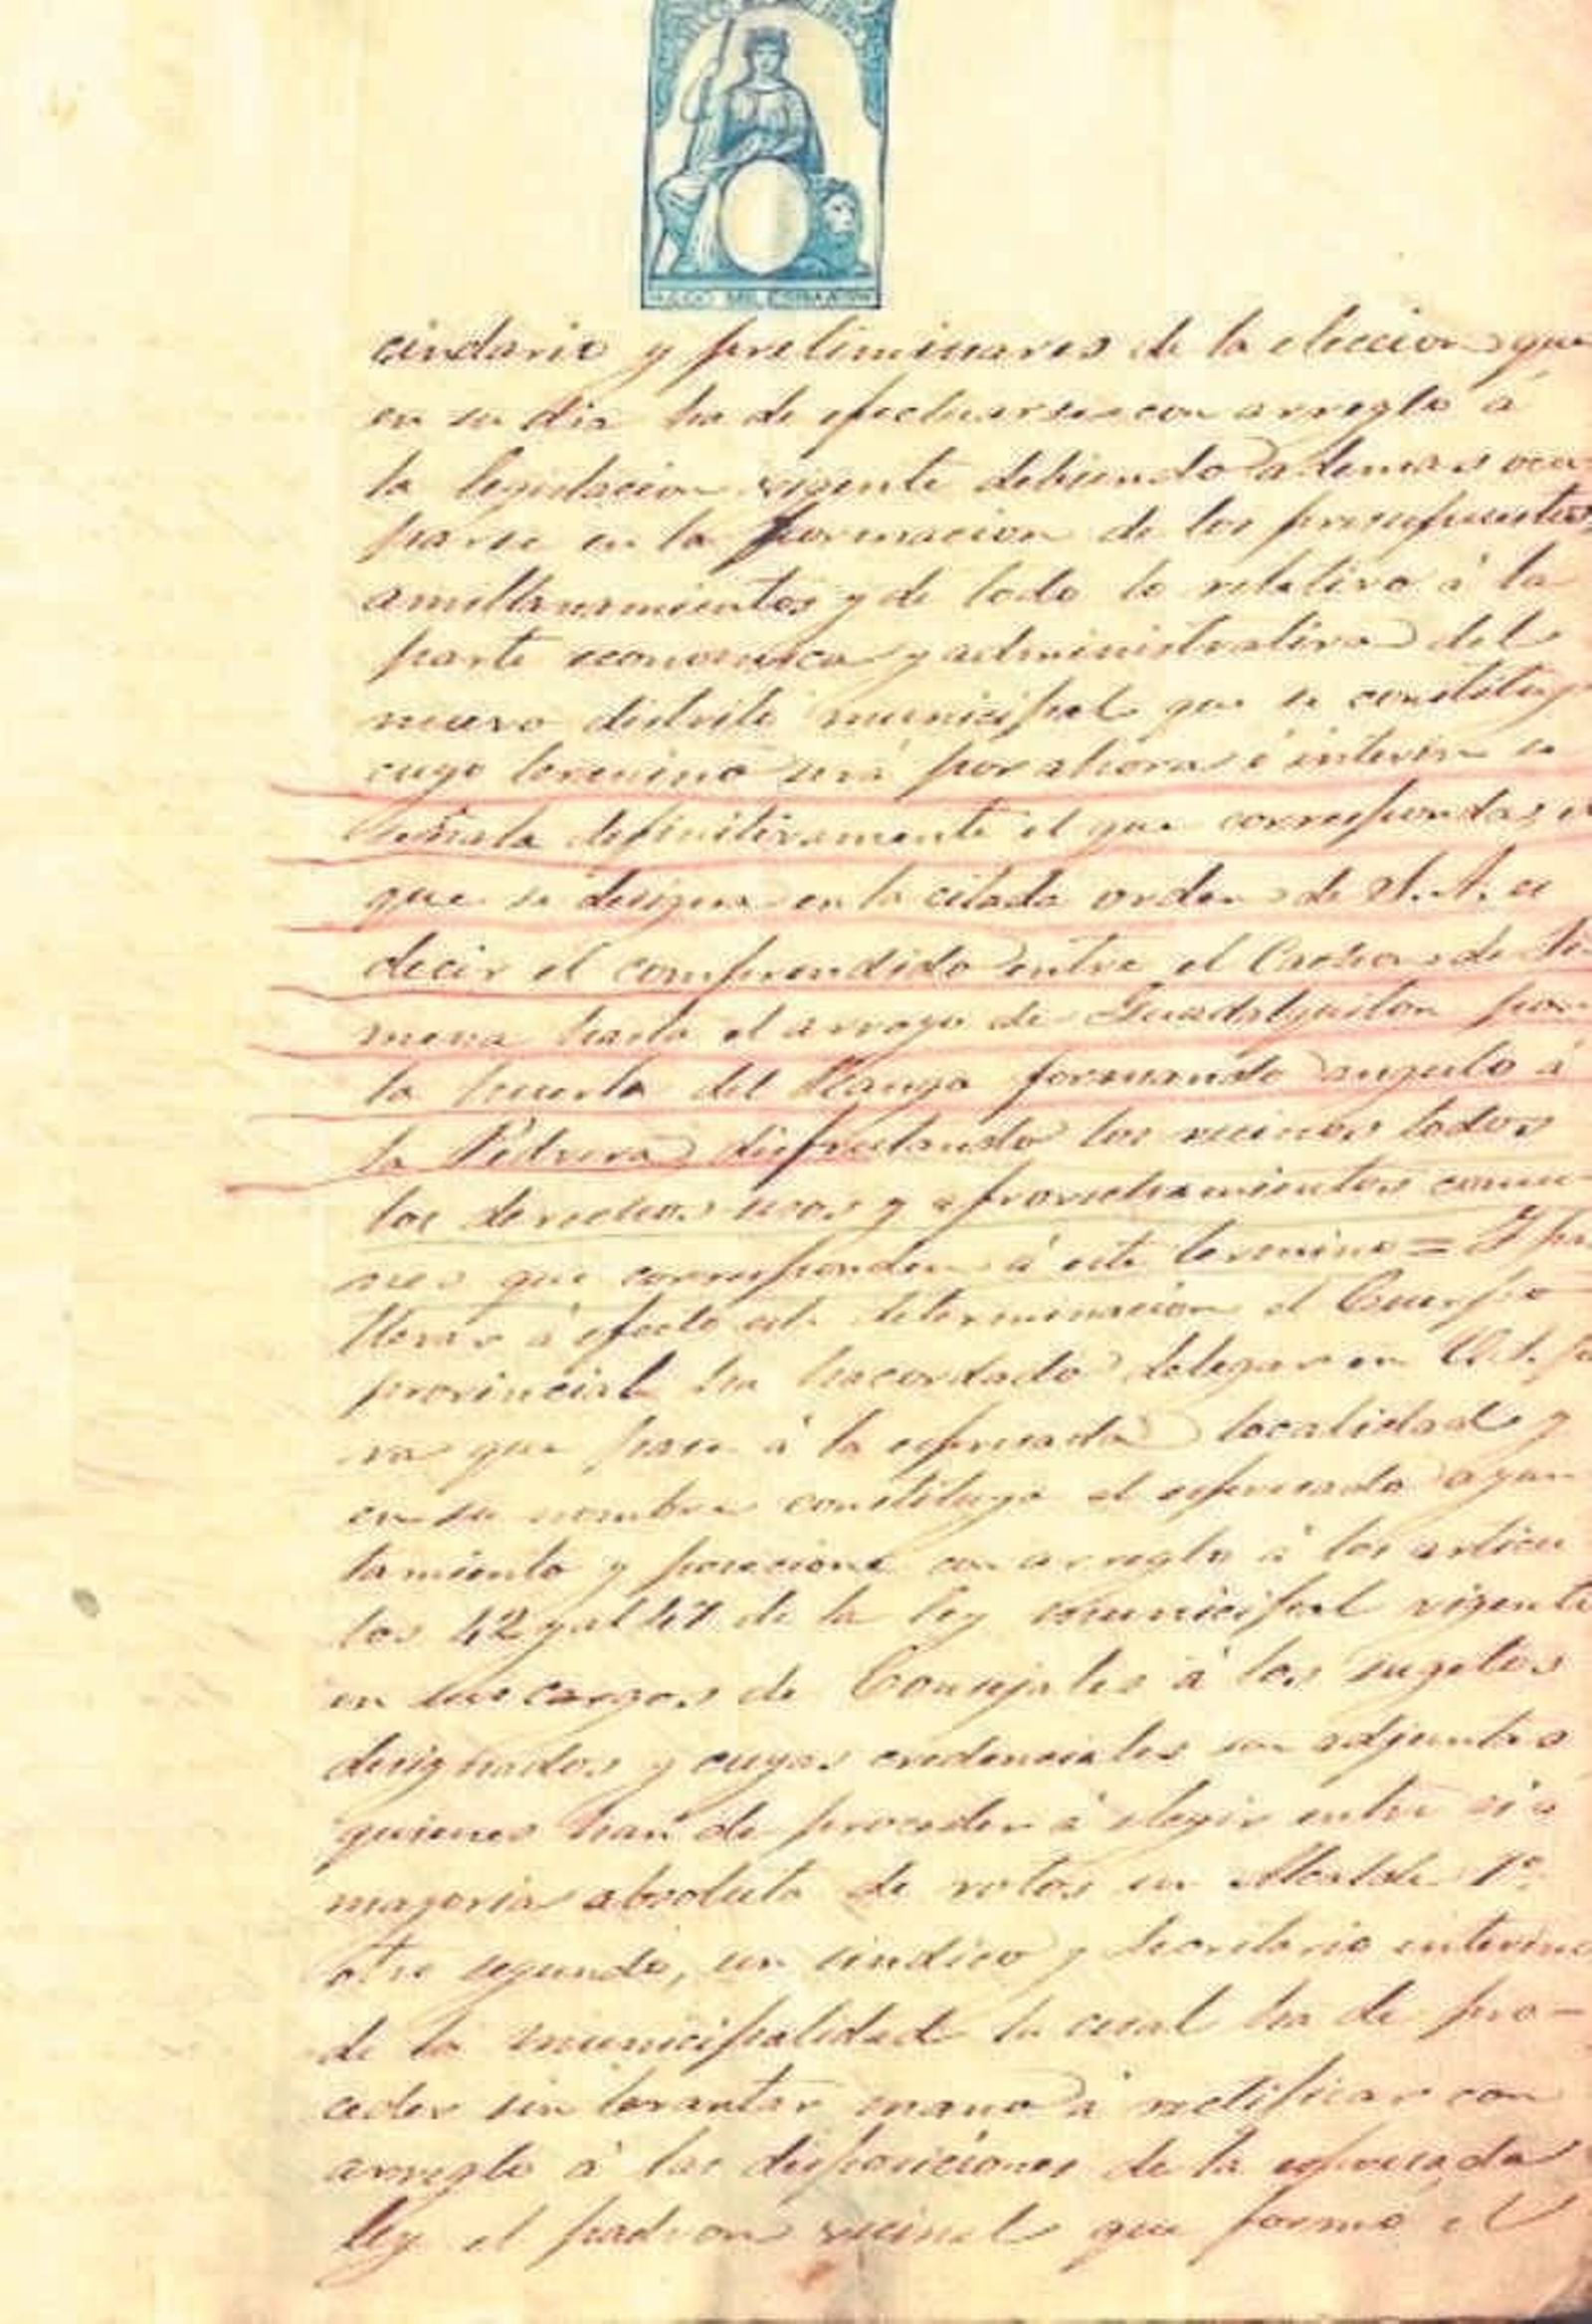 cindario y preliminares de la eleccion que
en su dia ha de efectuarse con arreglo á
la legislacion vigente debiendo ademas ocu
parse en la formacion de los presupuestos
amillaramientos y de todo lo relativo á la
parte economica y administrativa del
nuevo distrito municipal que se constituye
cuyo termino será por ahora é interin se
señala definitivamente el que corresponda el
que se designa en la citada orden de S. A. es
decir el comprendido entre el de
mena hasta el arroyo de Guadalquiton por
la huerta del formando angulo á
la Pedrera disfrutando los vecinos todos
los derechos usos y aprovechamientos comu
nes que corresponden á este termino = Y pa
llevar á efecto esta determinacion el Cuerpo
provincial ha hacordado delegar en V.S. pa
ra que pase á la espresada localidad y
en su nombre constituya el espresado ayun
tamiento y posecione con arreglo á los articu
los 42 y al 47 de la ley municipal vigente
en sus cargos de Consejales á los sugetos
designados y cuyas credenciales son adjuntas
quienes han de proceder á elegir entre si á
mayoria absoluta de votos un Alcalde 1º
otro segundo, un sindico y Secretario interino
de la municipalidad la cual ha de pro-
ceder sin levantar mano á rectificar con
arreglo á las disposiciones de la espresada
ley el padron vecinal que formó el